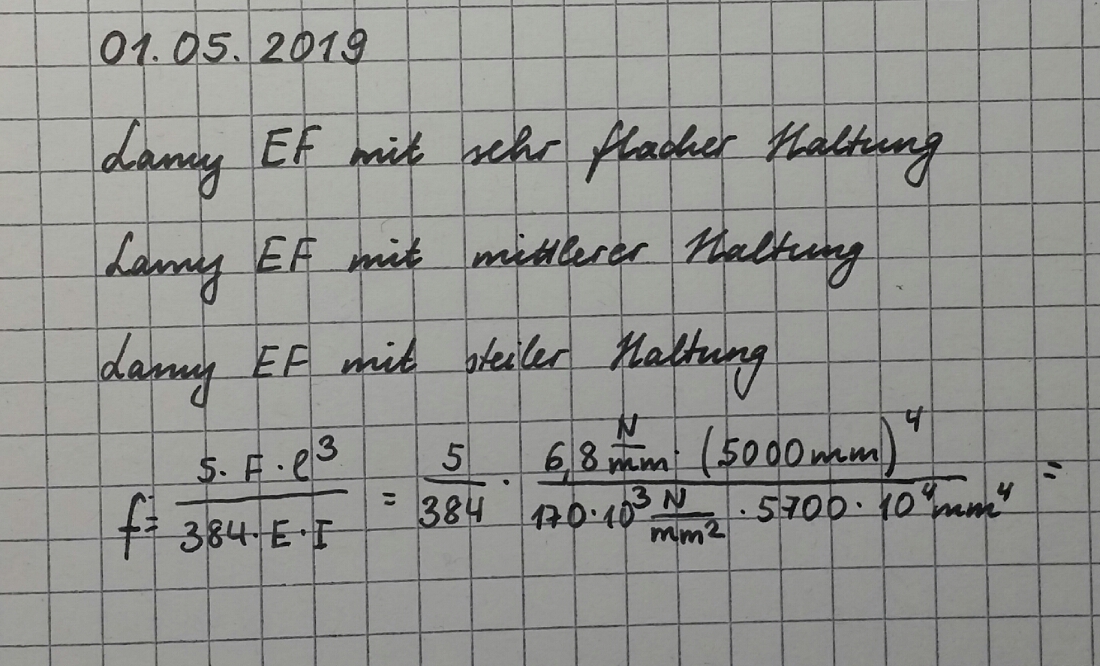 01.05.2019
Lamy EF mit sehr flacher Haltung
Lamy EF mit mittlerer Haltung
Lamy EF mit steiler Haltung
f = (5 · F · l³)/(384 · E · I) = 5/384 · (6,8 N/mm · (5000mm)⁴)/(170 · 10³ N/mm² · 5700 · 10⁴ mm⁴) =